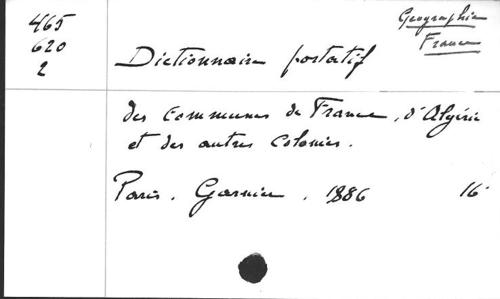 465
620
2
Geographie
France
Dictionnaire portatif
des communes de France, d'Algérie
et des autres colonies.
Paris. Garnier. 1886 16°